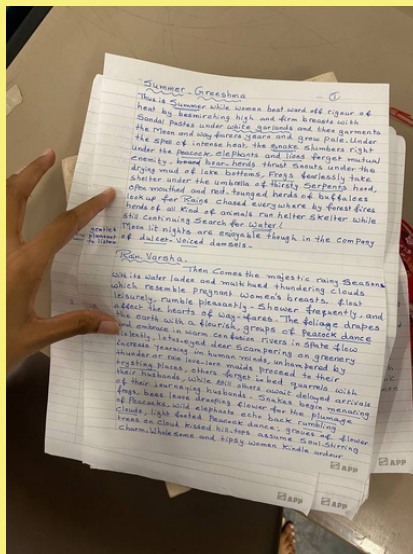 Summer - Greeshma
①
Thus is Summer while women best ward off rigour of
heat by besmirching high and firm breasts with
Sandal pastes under white garlands and thee garments
the Moon and way farers yearn and grow pale. Under
the spell of intense heat, the snake slumbers right
under the Peacock, elephants and lions forget mutual
enemity. bear herds thrust snouts under the
drying mud of lake bottoms, Frogs fearlessly take
shelter under the umbrella of thirsty Serpents hood,
open mouthed and red-tounged herds of buffaloes
look up for Rains chased everywhere by forest fires
herds of all kind of animals run helter skelter while
still continuing Search for Water!
Moon lit nights are enjoyable though in the company
of dulcet-voiced damsels.
gentles
pleasant
to listen
Rain Varsha.
Then Comes the majestic rainy Seasons
With its water laden and multhued thundering clouds
which resemble pregnant women's breasts. float
leisurely, rumble pleasantly - Shower frequently, and
affect the hearts of way-fares. The foliage drapes
the earth with a flourish, groups of Peacock dance
and embrace in warm confusion rivers in spate flow
violently, lotus-eyed deer Scampering on greenery
increase yearning in human minds, unhampered by
thunder or rain love-lorn maids proceed to their
trysting places, others forget in bed quarrels with
their husbands, while still others await delayed arrivals
of their journeying husbands. Snakes begin menacing
frogs, bees leave drooping flower for the plumage
of Peacocks. wild elephants echo back rumbling
Clouds, light footed Peacock dance; groves of flower
trees on Cloud kissed hill-tops assume Soul Stirring
charm. Wholesome and tipsy women kindle ardour.
APP
APP
APP
APP